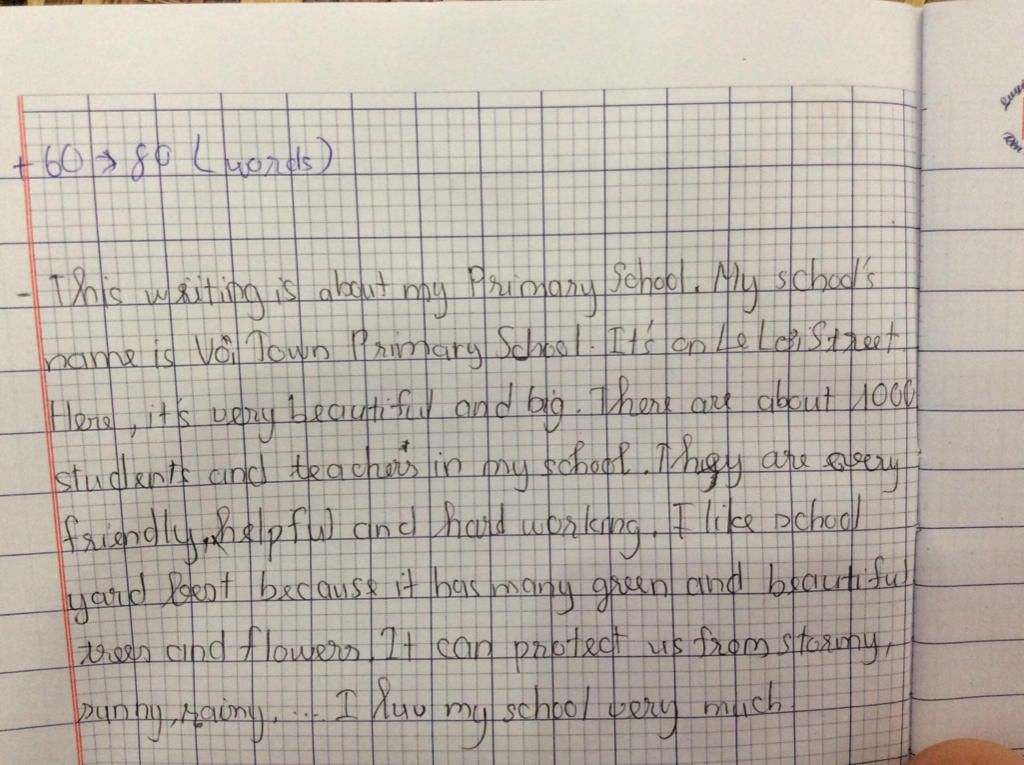 + 60 → 80 (words)
- This writing is about my Primary School. My school's
name is Vôi Town Primary School. It's on Le Lợi Street
Here, it's very beautiful and big. There are about 1000
students and teachers in my school. They are very
friendly, helpful and hard working. I like school
yard best because it has many green and beautiful
trees and flowers. It can protect us from stormy,
sunny, rainy, ... I luv my school very much